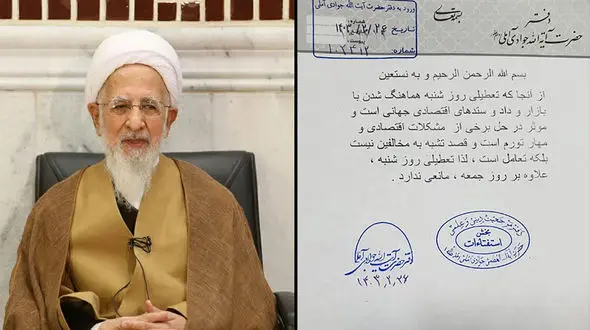 بسمه تعالی
دفتر
حضرت آیة الله جوادی آملی
ورود به دفتر حضرت آیت الله جوادی آملی
تاریخ ۱۴۰۳/۲/۲۶
شماره:
بسم الله الرحمن الرحیم و به نستعین
از آنجا که تعطیلی روز شنبه هماهنگ شدن با
بازار و داد و ستدهای اقتصادی جهانی است و
موثر در حل برخی از مشکلات اقتصادی و
مهار تورم است و قصد تشبه به مخالفین نیست
بلکه تعامل است ، لذا تعطیلی روز شنبه ،
علاوه بر روز جمعه ، مانعی ندارد .
بخش
استفتاءات
دفتر حضرت آیت الله جوادی آملی
۱۴۰۳,۲,۲۶